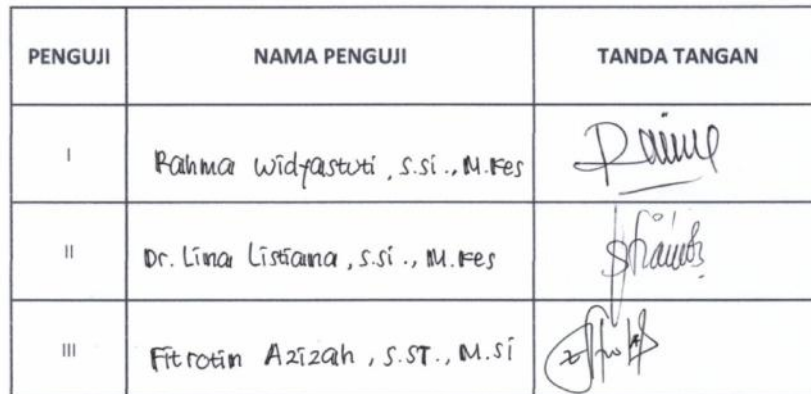 PENGUJI NAMA PENGUJI TANDA TANGAN
I Rahma Widyastuti, S.Si., M.Kes
II Dr. Lina Listiana, S.Si., M.Kes
III Fitrotin Azizah, S.ST., M.Si